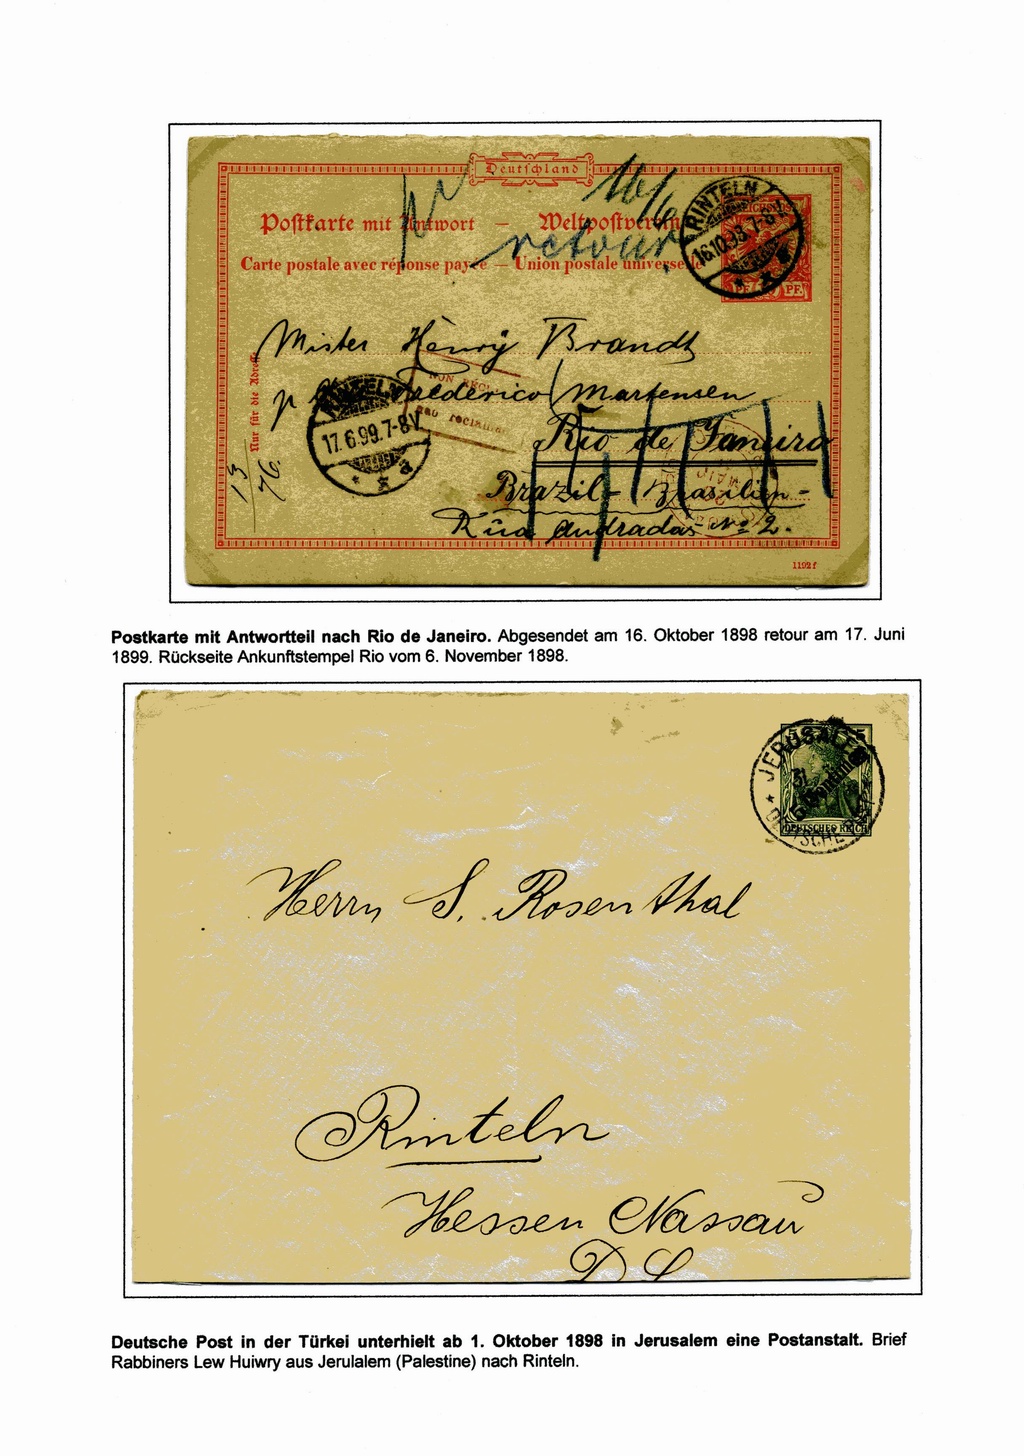 Deutschland
Postkarte mit Antwort — Weltpostverein
Carte postale avec réponse payée — Union postale universelle
16/6
retour
RINTELN
16.10.98.7-8V.
a
PF. PF.
Mister Henry Brandt
p Frederico Martensen
Rio de Janeiro
Brazil - Brasilien -
Rua Andradas No 2.
Nur für die Adresse
13
76.
RINTELN
17.6.99.7-8V.
a
NON RÉCL
não reclama
MAIO
1192 f
Postkarte mit Antwortteil nach Rio de Janeiro. Abgesendet am 16. Oktober 1898 retour am 17. Juni
1899. Rückseite Ankunftstempel Rio vom 6. November 1898.
JERUSALEM
31
DEUTSCHE POST
5
5 Centimes
DEUTSCHES REICH
Herrn S. Rosenthal
Rinteln
Hessen Nassau
Deutsche Post in der Türkei unterhielt ab 1. Oktober 1898 in Jerusalem eine Postanstalt. Brief
Rabbiners Lew Huiwry aus Jerulalem (Palestine) nach Rinteln.